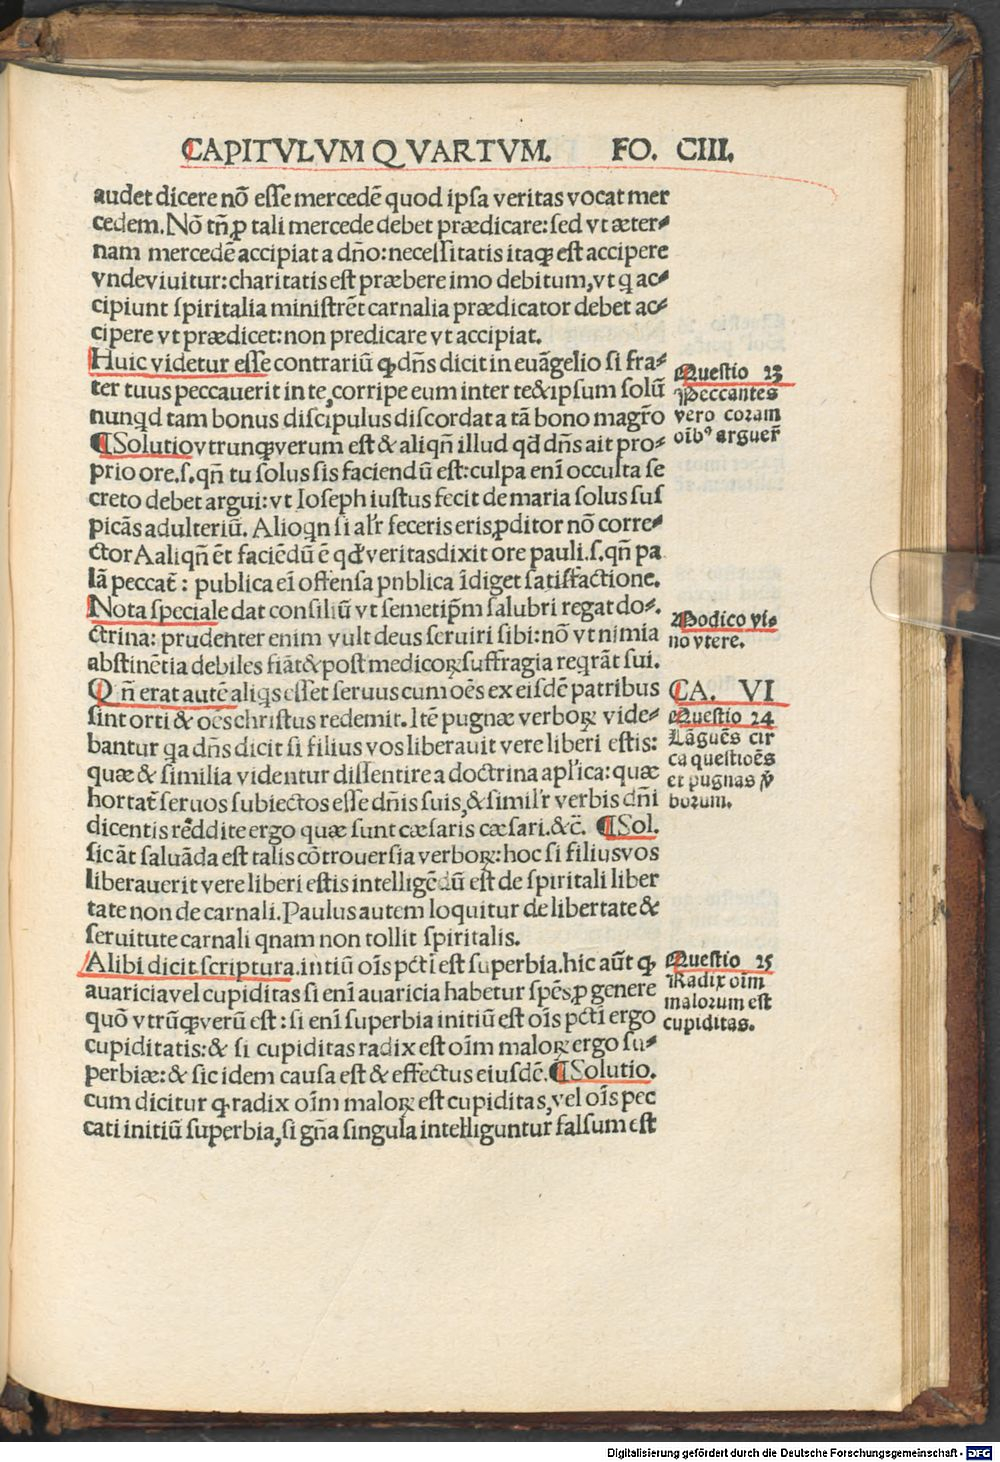 CAPITVLVM QVARTVM. FO. CIII.
audet dicere nō eſſe mercedē quod ipſa veritas vocat mer
cedem. Nō tñ ꝓ tali mercede debet prædicare: ſed vt æter⸗
nam mercedē accipiat a dño: neceſſitatis itaq̃ eſt accipere
vnde viuitur: charitatis eſt præbere imo debitum, vt q ac⸗
cipiunt ſpiritalia miniſtrēt carnalia prædicator debet ac⸗
cipere vt prædicet: non predicare vt accipiat.
Huic videtur eſſe contrariū ꝙ dñs dicit in euāgelio ſi fra⸗
ter tuus peccauerit in te, corripe eum inter te & ipſum ſolū
nunqd tam bonus diſcipulus diſcordat a tā bono magr̄o
¶ Solutio vtrunq̃ verum eſt & aliqñ illud qd dñs ait pro⸗
prio ore.ſ. qñ tu ſolus ſis faciendū eſt: culpa enī occulta ſe
creto debet argui: vt Ioſeph iuſtus fecit de maria ſolus ſuſ
picās adulteriū. Alioqn ſi alr̄ feceris eris ꝓditor nō corre⸗
ctor A aliqñ ēt faciēdū ē qd veritas dixit ore pauli.ſ. qñ pa
lā peccat̄: publica eī offenſa pnblica īdiget ſatiſfactione.
Nota ſpeciale dat conſiliū vt ſemetip̄m ſalubri regat do⸗.
ctrina: prudenter enim vult deus ſeruiri ſibi: nō vt nimia
abſtinētia debiles fiāt & poſt medicoꝝ ſuffragia reqrāt ſui.
Qñ erat autē aliqs eſſet ſeruus cum oēs ex eiſdē patribus
ſint orti & oēs chriſtus redemit. Itē pugnæ verboꝝ vide⸗
bantur qa dñs dicit ſi filius vos liberauit vere liberi eſtis:
quæ & ſimilia videntur diſſentire a doctrina apl̄ica: quæ
hortat̄ ſeruos ſubiectos eſſe dñis ſuis, & ſimilr̄ verbis dñi
dicentis reddite ergo quæ ſunt cæſaris cæſari.&c̄. ¶ Sol.
ſic āt ſaluāda eſt talis cōtrouerſia verboꝝ: hoc ſi filius vos
liberauerit vere liberi eſtis intelligēdū eſt de ſpiritali liber
tate non de carnali. Paulus autem loquitur de libertate &
ſeruitute carnali qnam non tollit ſpiritalis.
Alibi dicit ſcriptura. intiū oīs pctī eſt ſuperbia. hic aūt ꝙ
auaricia vel cupiditas ſi enī auaricia habetur ſpēs ꝓ genere
quō vtrūq̃ verū eſt: ſi enī ſuperbia initiū eſt oīs pctī ergo
cupiditatis: & ſi cupiditas radix eſt oīm maloꝝ ergo ſu⸗
perbiæ: & ſic idem cauſa eſt & effectus eiuſdē. ¶ Solutio.
cum dicitur ꝙ radix oīm maloꝝ eſt cupiditas, vel oīs pec
cati initiū ſuperbia, ſi gña ſingula intelliguntur falſum eſt
Queſtio 23
Peccantes
vero coram
oībꝰ arguer̄
Modico vi⸗
no vtere.
CA. VI
Queſtio 24
Lāguēs cir
ca queſtiōes
et pugnas v̄
borum.
Queſtio 25
Radix oīm
malorum eſt
cupiditas.
Digitalisierung gefördert durch die Deutsche Forschungsgemeinschaft - DFG